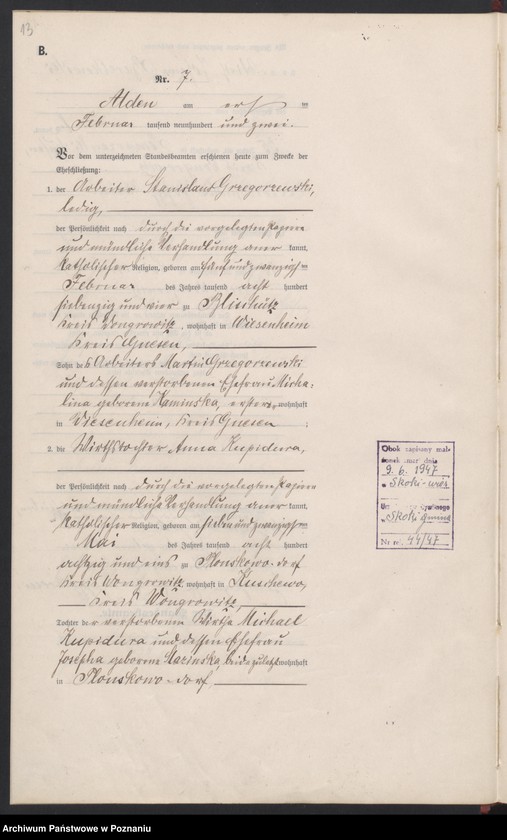 13
B.
Nr. 7.
am ersten
Februar tausend neunhundert und zwei.
Vor dem unterzeichneten Standesbeamten erschienen heute zum Zwecke der
Eheschließung:
1. der Arbeiter Stanislaus Grzegorzewski,
ledig,
der Persönlichkeit nach durch die vorgelegten Papiere
und mündliche Verhandlung anerkannt,
katholischer Religion, geboren am fünfundzwanzigsten
Februar des Jahres tausend acht hundert
siebenzig und vier zu
Kreis Wongrowitz, wohnhaft in Wiesenheim
Kreis Gnesen,
Sohn des Arbeiters Martin Grzegorzewski
und dessen verstorbenen Ehefrau Micha-
lina geborene Kaminska, ersterer wohnhaft
in Wiesenheim, Kreis Gnesen ;
2. die Wirthstochter Anna Kupidura,
der Persönlichkeit nach durch die vorgelegten Papiere
und mündliche Verhandlung anerkannt,
katholischer Religion, geboren am siebenundzwanzigsten
Mai des Jahres tausend acht hundert
achtzig und eins zu Plonskowo-dorf
Kreis Wongrowitz, wohnhaft in
Kreis Wongrowitz,
Tochter der verstorbenen Wirthe Michael
Kupidura und dessen Ehefrau
Josepha geborene beide zuletzt wohnhaft
in Plonskowo-dorf,
Obok zapisany mał-
żonek zmarł dnia
9. 6. 1947
w Skoki-wieś
Urz
w Skoki
Nr. 44/47
Archiwum Państwowe w Poznaniu